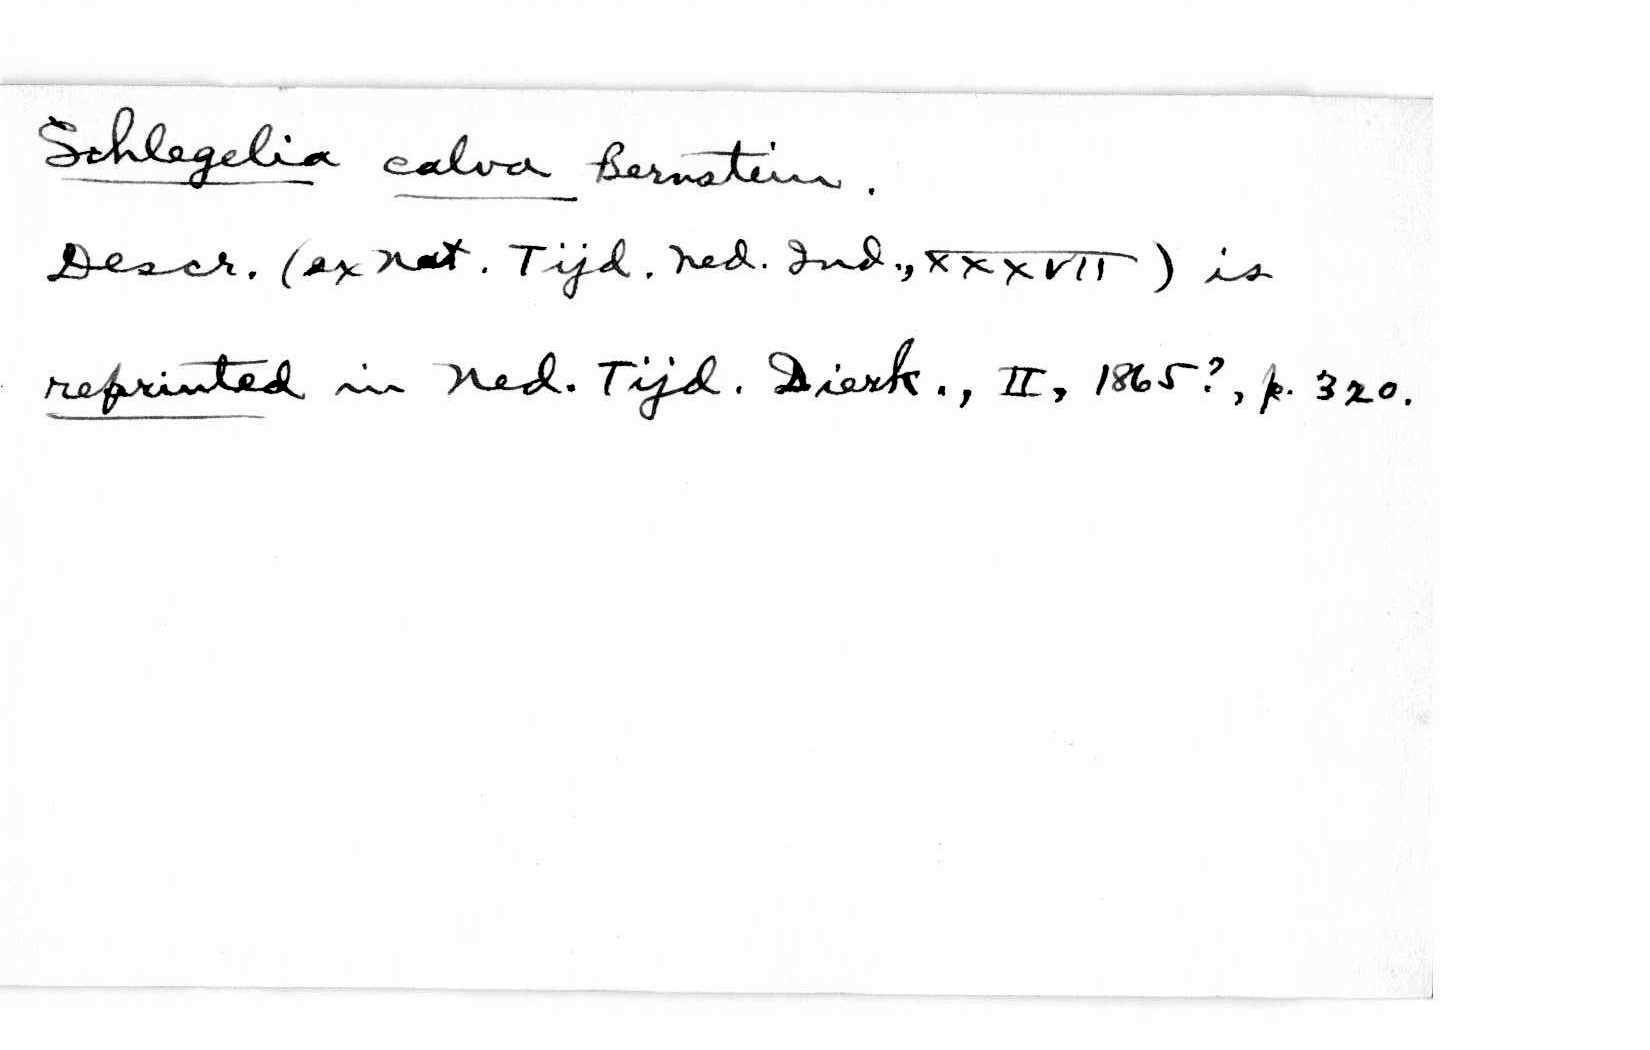 Schlegelia calva Bernstein.
Descr. (ex Nat. Tijd. Ned. Ind., XXXVII) is
reprinted in Ned. Tijd. Dierk., II, 1865?, p. 320.